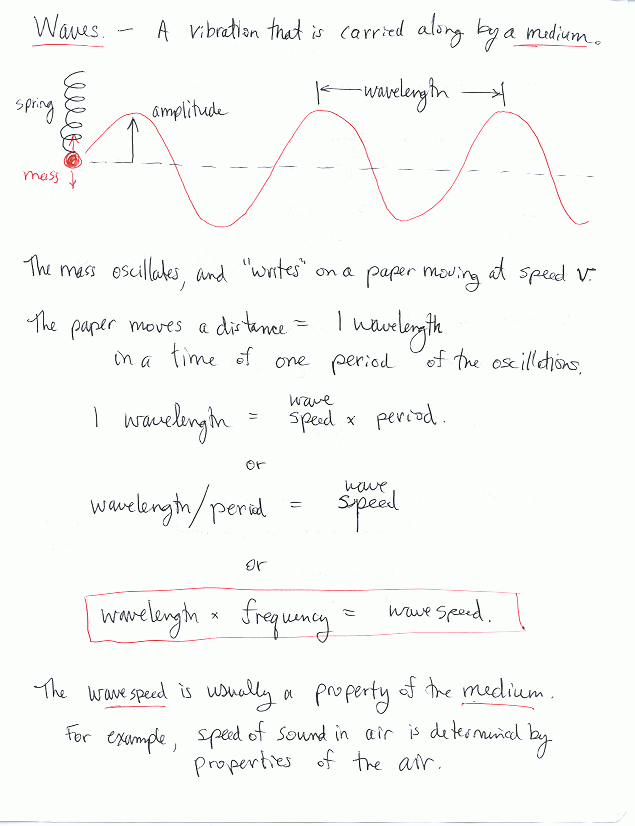 Waves. - A vibration that is carried along by a medium.
wavelength
spring
amplitude
mass
The mass oscillates, and "writes" on a paper moving at speed v.
The paper moves a distance = 1 wavelength
in a time of one period of the oscillations.
1 wavelength = wave speed x period.
or
wavelength/period = wave speed
or
wavelength x frequency = wave speed.
The wave speed is usually a property of the medium.
For example, speed of sound in air is determined by
properties of the air.